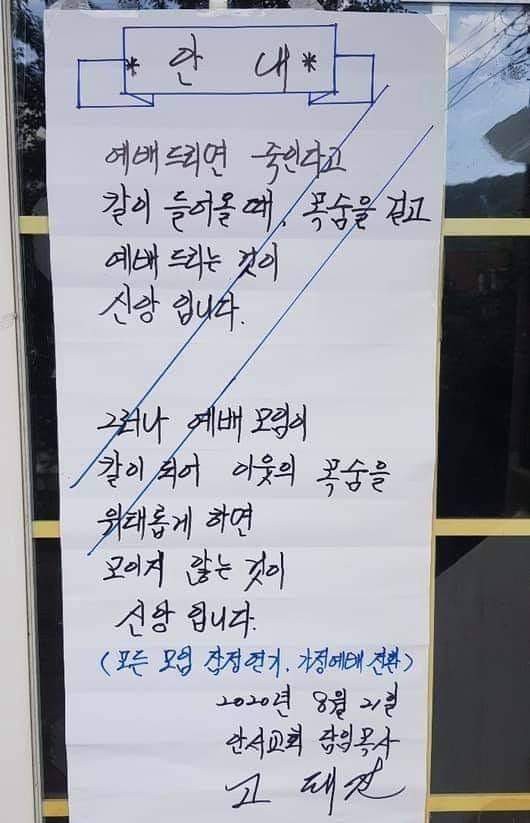 * 안 내 *
예배드리면 죽인다고
칼이 들어올 때, 목숨을 걸고
예배 드리는 것이
신앙 입니다.
그러나 예배 모임이
칼이 되어 이웃의 목숨을
위태롭게 하면
모이지 않는 것이
신앙 입니다.
(모든 모임 잠정연기, 가정예배 전환)
2020년 8월 21일
안서교회 담임목사
고 태진